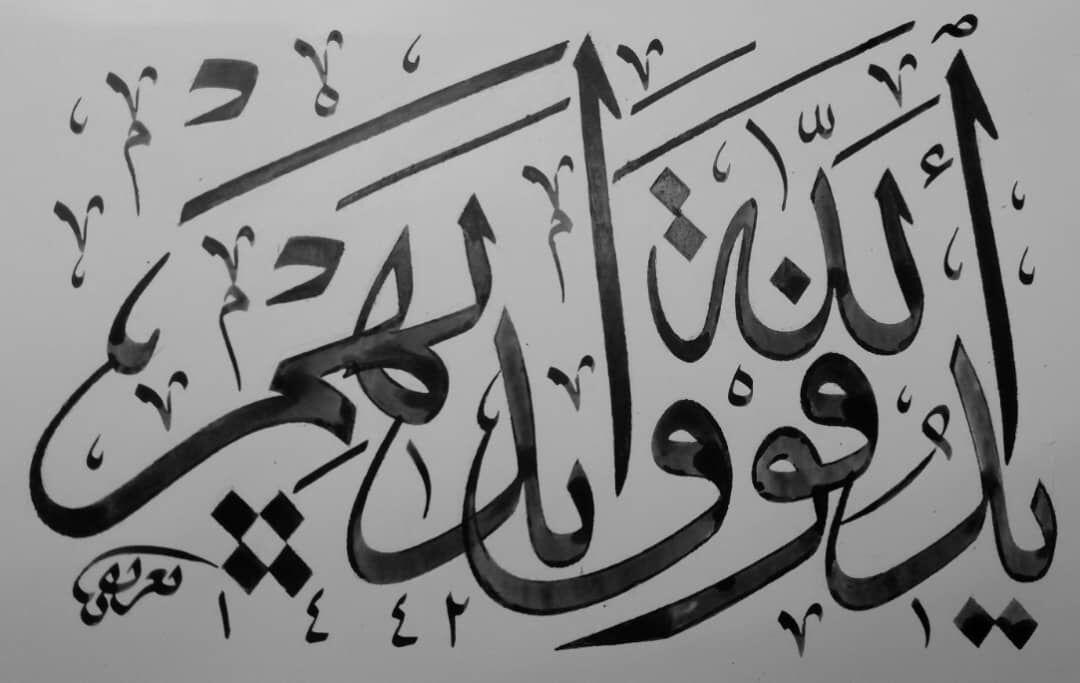 يَدُ اللَّهِ فَوْقَ أَيْدِيهِمْ
١٤٤٢